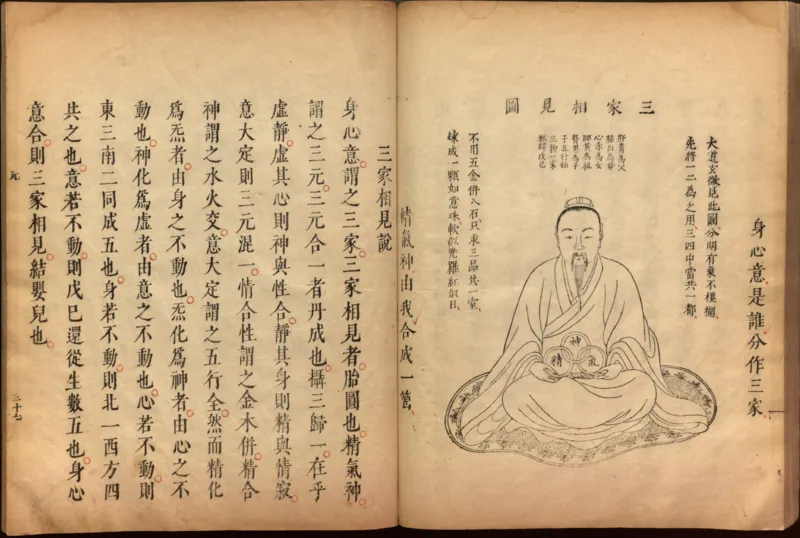 身心意是誰分作三家
三家相見圖
大道玄微見此圖分明有象不模糊
先將一二為之用三四中當共一都
肝青為父
肺白為母
心赤為女
脾黃為祖
腎黑為子
子五行始
三物一家
都歸戊己
不用五金併八石只求三品共一室
煉成一顆如意珠軟似兜羅紅似日
神
精
氣
精氣神由我合成一箇
三家相見說
身心意謂之三家三家相見者胎圓也精氣神
謂之三元三元合一者丹成也攝三歸一在乎
虛靜虛其心則神與性合靜其身則精與情寂
意大定則三元混一情合性謂之金木併精合
神謂之水火交意大定謂之五行全然而精化
為炁者由身之不動也炁化為神者由心之不
動也神化為虛者由意之不動也心若不動則
東三南二同成五也身若不動則北一西方四
共之也意若不動則戊己還從生數五也身心
意合則三家相見結嬰兒也
元
三十七